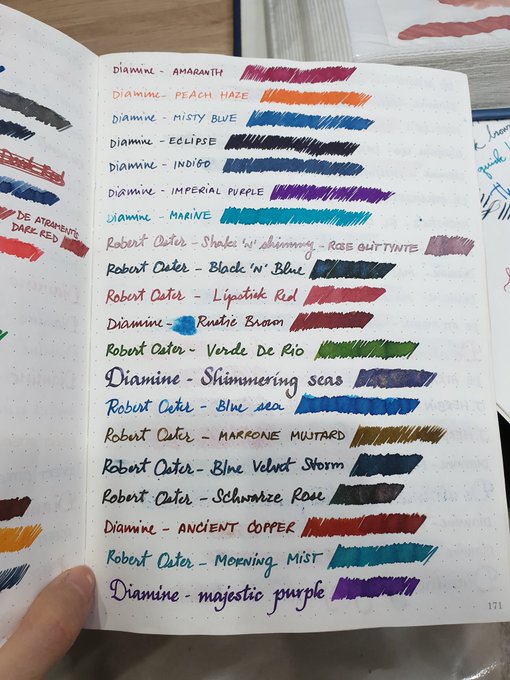 DE ATRAMENTIS
DARK RED
Diamine - AMARANTH
Diamine - PEACH HAZE
Diamine - MISTY BLUE
Diamine - ECLIPSE
Diamine - INDIGO
Diamine - IMPERIAL PURPLE
Diamine - MARINE
Robert Oster - Shake 'n' shimmy - ROSE GILTTYNTE
Robert Oster - Black 'N' Blue
Robert Oster - Lipstick Red
Diamine - Rustic Brown
Robert Oster - Verde De Rio
Diamine - Shimmering seas
Robert Oster - Blue sea
Robert Oster - MARRONE MUSTARD
Robert Oster - Blue Velvet Storm
Robert Oster - Schwarze Rose
Diamine - ANCIENT COPPER
Robert Oster - MORNING MIST
Diamine - majestic purple
171